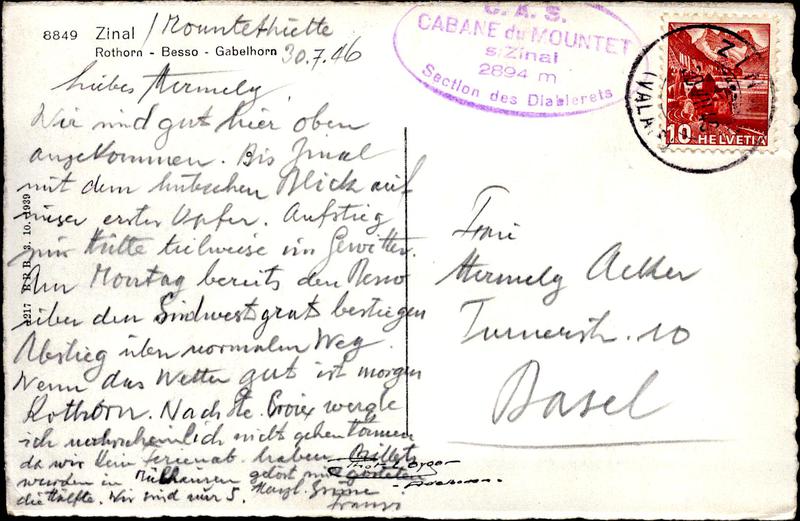 8849 Zinal / Mountethütte
Rothorn - Besso - Gabelhorn 30.7.46
C. A. S.
CABANE du MOUNTET
s/Zinal
2894 m
Section des Diablerets
10 HELVETIA
Liebes Hermely
Wir sind gut hier oben
angekommen. Bis Zinal
mit dem hübschen Blick auf
unser erstes Opfer. Aufstieg
zur Hütte teilweise im Gewitter.
Am Montag bereits den Besso
über den Südwestgrat bestiegen
Abstieg über normalen Weg.
Wenn das Wetter gut ist morgen
Rothorn. Nach Ste. Croix werde
ich wahrscheinlich nicht gehen können
da wir kein Ferienab. haben
wurden in Mülhausen
die Hälfte. Wir sind nur 5. Herzl. Grüsse
Franz
1217 B.R.B. 3. 10. 1939
Frau
Hermely Acker
Turnerstr. 10
Basel